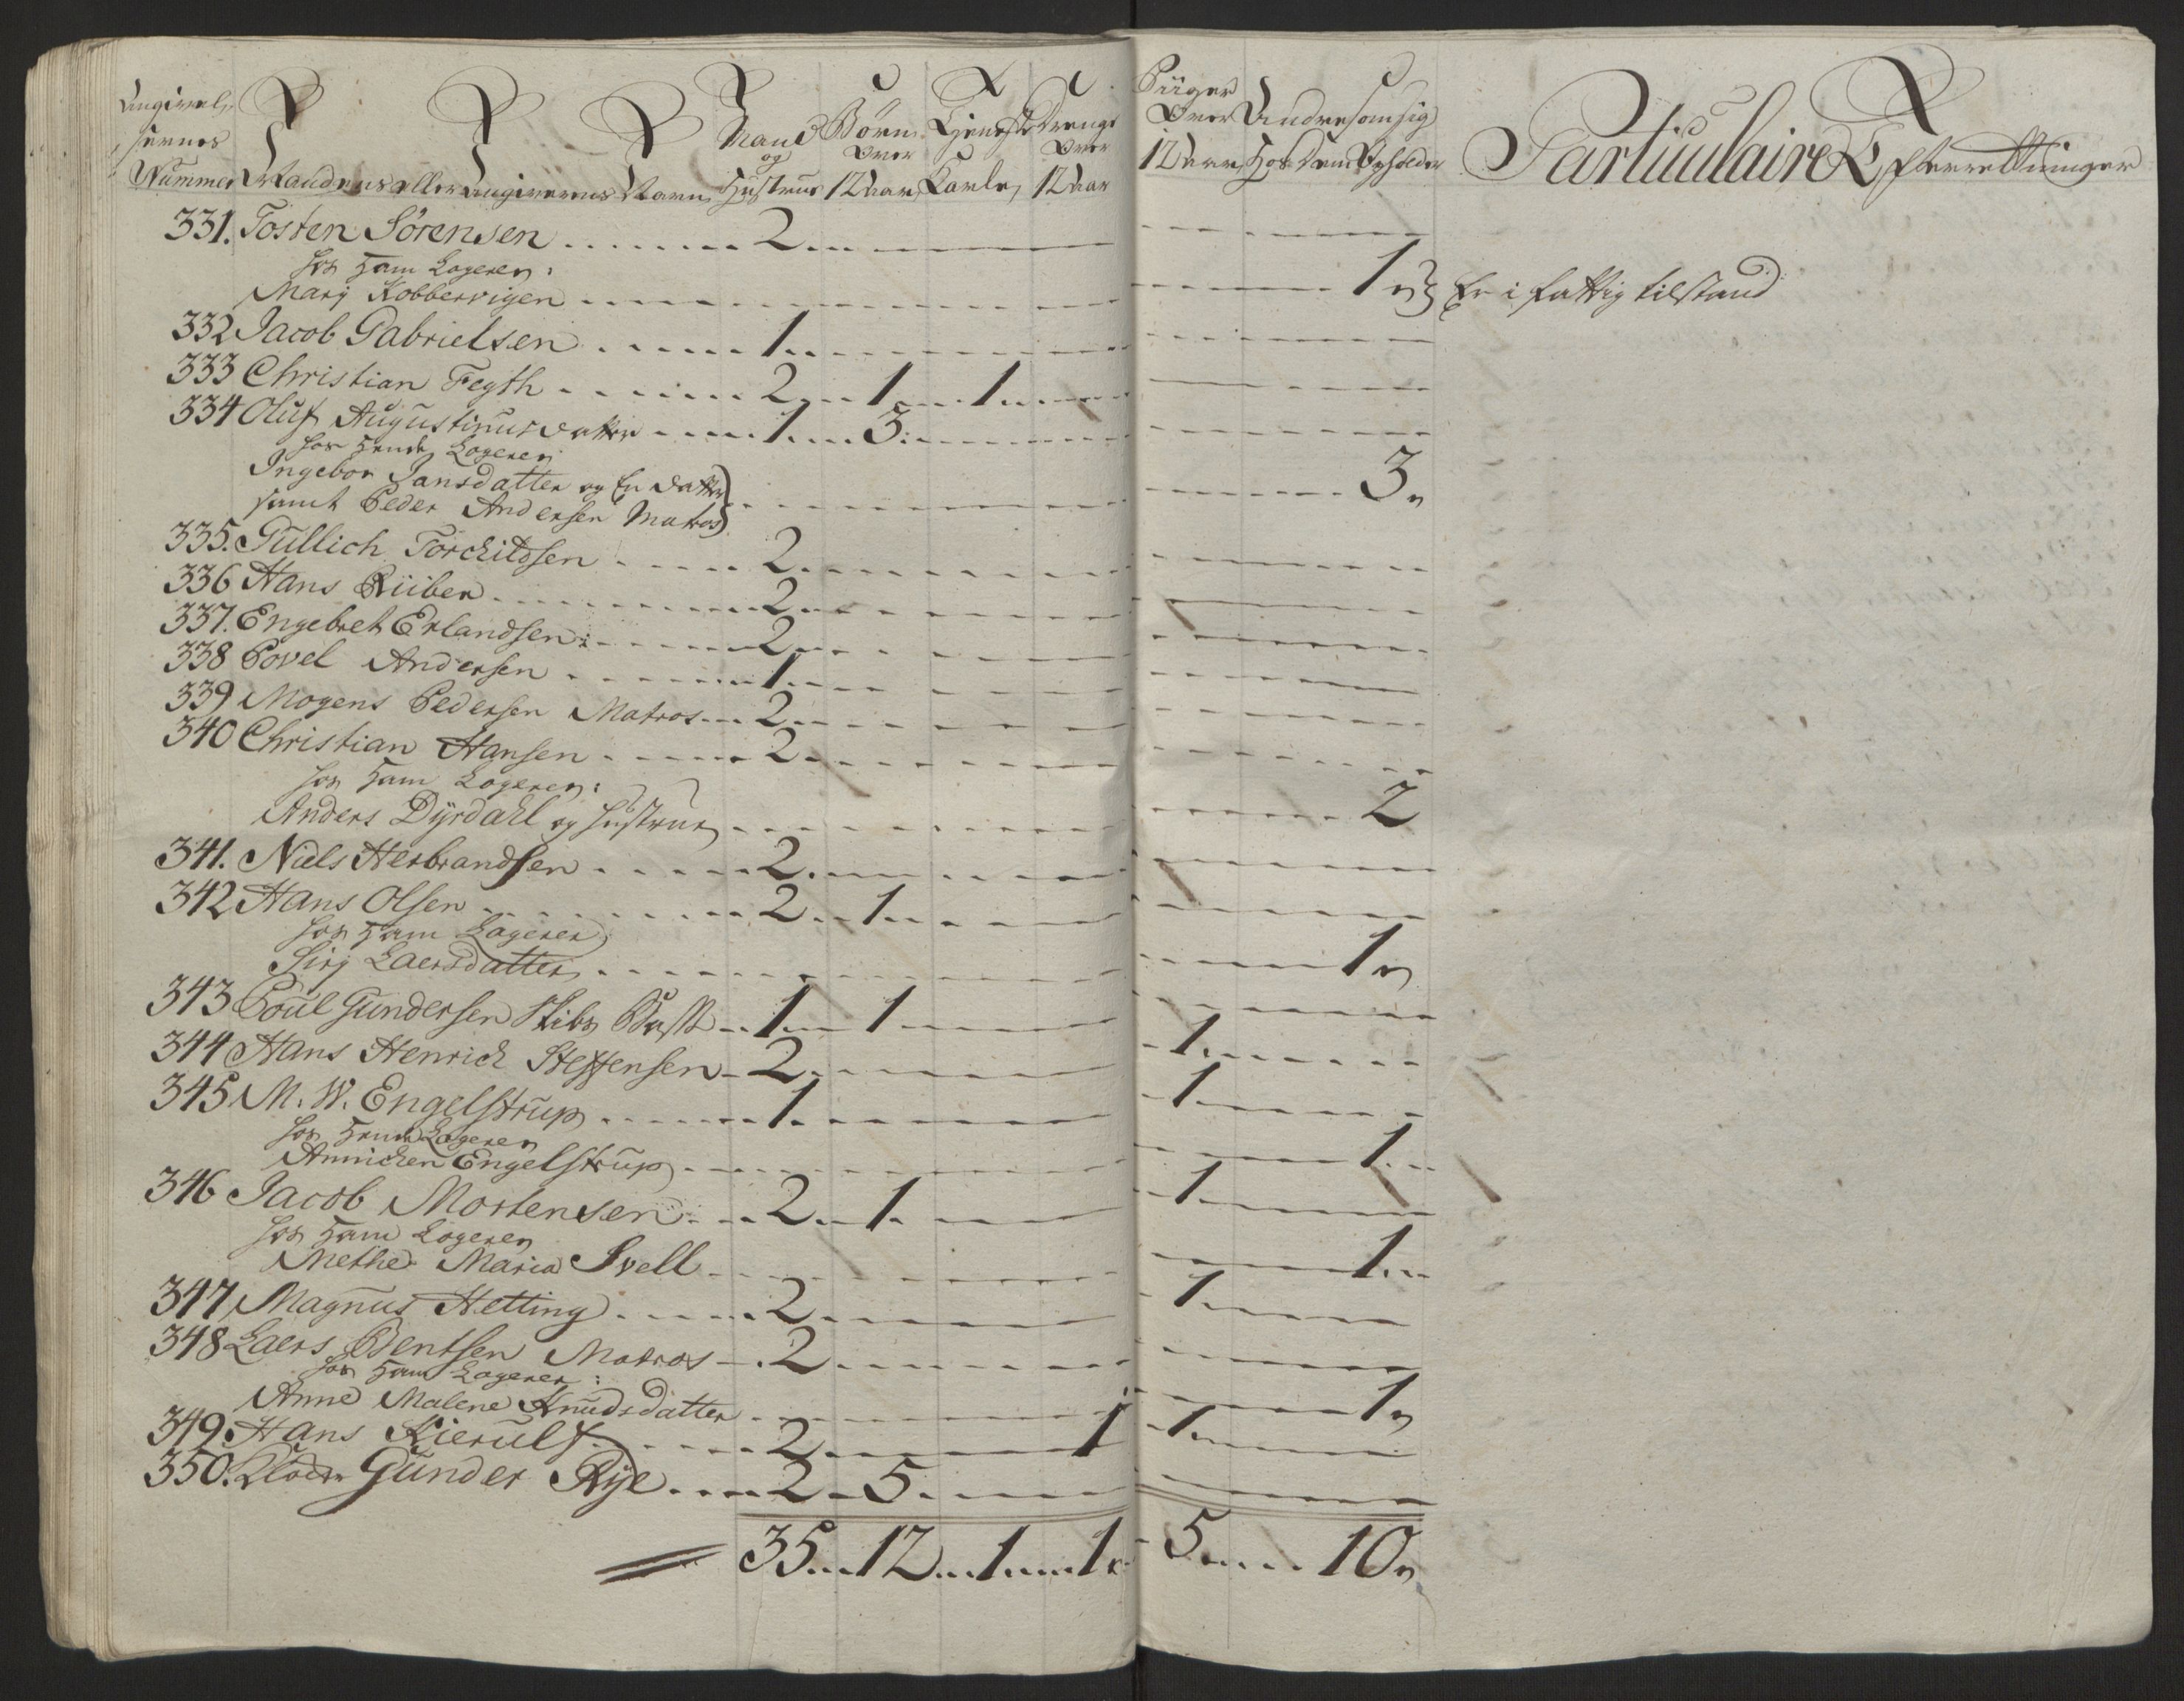 Angivel-
sernes
Nummer Mandens eller Angiverens Navn Mand og Hustrue Børn Over 12 Aar Tieneste Karle Drenge Over 12 Aar Piiger Over 12 Aar Andre som sig Hos dem Opholder Particulaire Efterretninger
331. Tosten Sörensen 2
hos Ham Logerer:
Marj Kobbervigen 1 Er i fattig tilstand
332 Jacob Gabrielsen 1
333 Christian Fegth 2 1 1
334 Oluf Augustinusdatter 1 3
hos Hende Logerer
Ingebor Jansdatter og En datter
samt Peder Andersen Matros 3
335. Gullich Torckildsen 2
336 Hans Riiber 2
337. Engebret Erlandsen 2
338 Povel Andersen 1
339 Mogens Pedersen Matros 2
340 Christian Hansen 2
hos Ham Logerer:
Anders Dyrdahl og Hustrue 2
341. Niels Herbrandsen 2
342 Hans Olsen 2 1
hos Ham Logerer
Sirj Laersdatter 1
343 Poul Gundersen Skibs 1 1
344 Hans Henrick Steffensen 2 1
345 M. W. Engelstrup 1 1
hos Hende Logerer
Annichen Engelstrup 1
346 Jacob Mortensen 2 1 1
hos Ham Logerer
Methe Maria Svell 1
347 Magnus Hetting 2 1
348 Laers Bentsen Matros 2
hos Ham Logerer:
Anne Malene Knudsdatter 1
349 Hans Kierulf 2 1 1
350. Gunder Rye 2 5
35 12 1 1 5 10